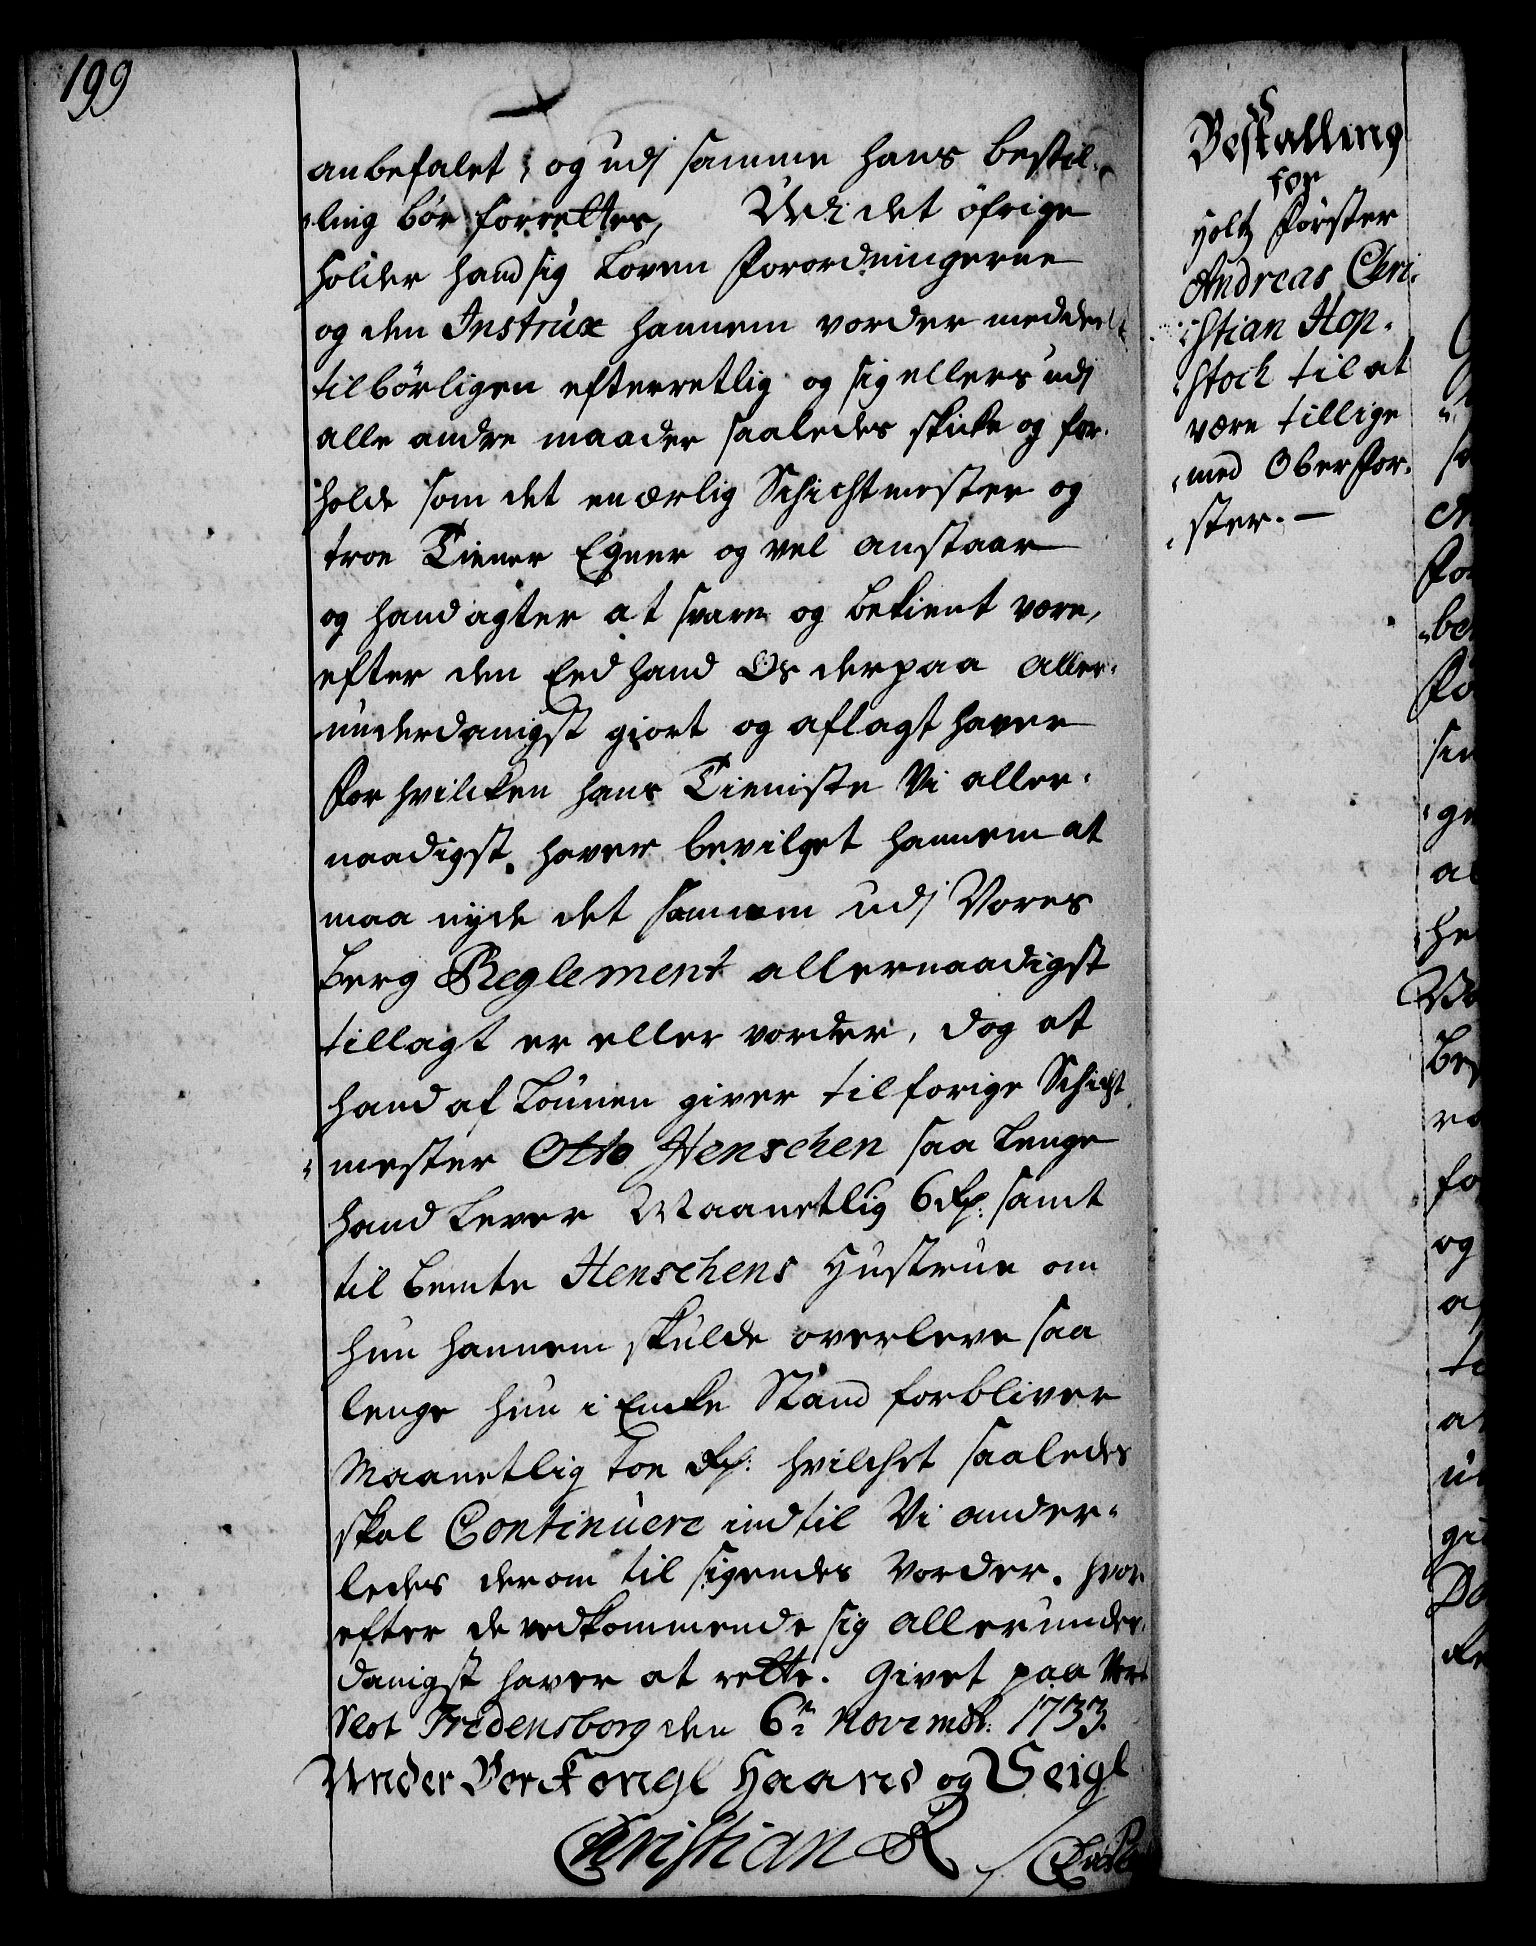 199
anbefalet, og udj samme hans bestil-
ling bør forrettes, Udi det öfrige
holder hand sig Loven Forordningerne
og den Instrux hannem vorder meddeelt
tilbørligen efterretlig og sig ellers udj
alle andre maader saaledes skicke og for-
holde som det en ærlig Schichtmester og
troe Tiener Egner og vel anstaar
og hand agter at svare og bekient være,
efter den Eed hand Os derpaa aller-
underdanigst giort og aflagt haver
For hvilcken hans Tieniste Vi aller-
naadigst haver bevilget hannem at
maa nyde det samme udj Vores
Berg Reglement allernaadigst
tillagt er eller vorder, dog at
hand af Lönnen giver til forige Schicht
mester Otto Henschen saa Lenge
hand Lever Maanetlig 6 Rd: samt
til bemte Henschens Hustrue om
hun hannem skulde overleve saa
lenge hun i Encke Stand forbliver
Maanetlig toe Rd: hvilchet saaledes
skal Continuere indtil Vi ander-
ledes derom til sigendes vorder. hvor
efter de vedkommende sig allerunder-
danigst haver at rette. Givet paa Vort
Slot Fredensborg den 6te Novembr: 1733.
Under Vor Kongl Haand og Seigl
Christian R
Bestalling
for
Holtz Förster
Andreas Chri-
stian Hop-
stock til at
være tillige
med Ober För-
ster. —